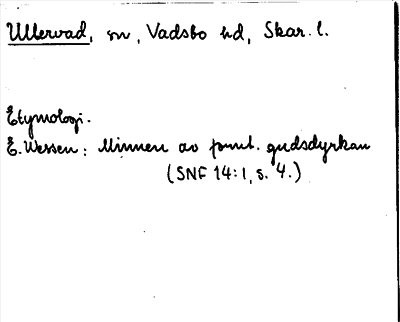 Ullervad, sn, Vadsbo hd, Skar. l.
Etymologi.
E. Wessen: Minnen av fornt. gudsdyrkan
(SNF 14:1, s. 4.)